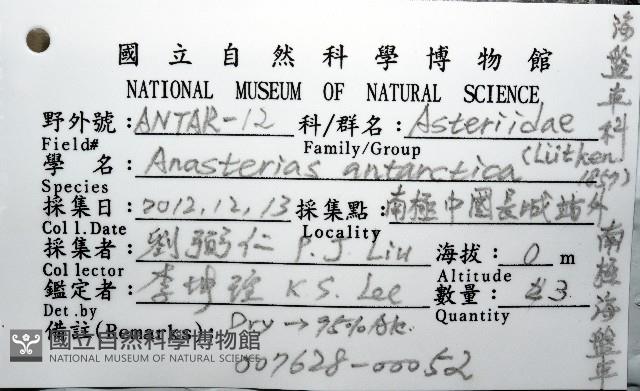 國立自然科學博物館
NATIONAL MUSEUM OF NATURAL SCIENCE
野外號：ANTAR-12 科/群名：Asteriidae
Field# Family/Group
學 名：Anasterias antarctica (Lütken, 1857)
Species
採集日：2012,12,13 採集點：南極中國長城站外
Coll.Date Locality
採集者：劉弼仁 P.J. Liu 海拔：0 m
Collector Altitude
鑑定者：李坤瑄 K.S. Lee 數量：3
Det.by Quantity
備註(Remarks)：Dry → 95% Alc.
007628-00052
海盤車科 南極海盤車
國立自然科學博物館
NATIONAL MUSEUM OF NATURAL SCIENCE